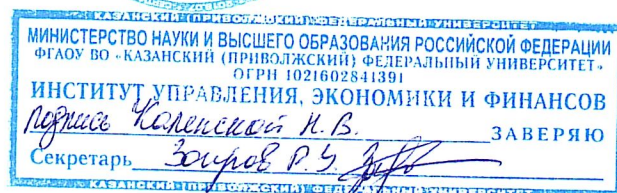 КАЗАНСКИЙ (ПРИВОЛЖСКИЙ) ФЕДЕРАЛЬНЫЙ УНИВЕРСИТЕТ
МИНИСТЕРСТВО НАУКИ И ВЫСШЕГО ОБРАЗОВАНИЯ РОССИЙСКОЙ ФЕДЕРАЦИИ
ФГАОУ ВО «КАЗАНСКИЙ (ПРИВОЛЖСКИЙ) ФЕДЕРАЛЬНЫЙ УНИВЕРСИТЕТ»
ОГРН 1021602841391
ИНСТИТУТ УПРАВЛЕНИЯ, ЭКОНОМИКИ И ФИНАНСОВ
подпись Каленской Н. В. ЗАВЕРЯЮ
Секретарь Заиров Р. У.
КАЗАНСКИЙ (ПРИВОЛЖСКИЙ) ФЕДЕРАЛЬНЫЙ УНИВЕРСИТЕТ